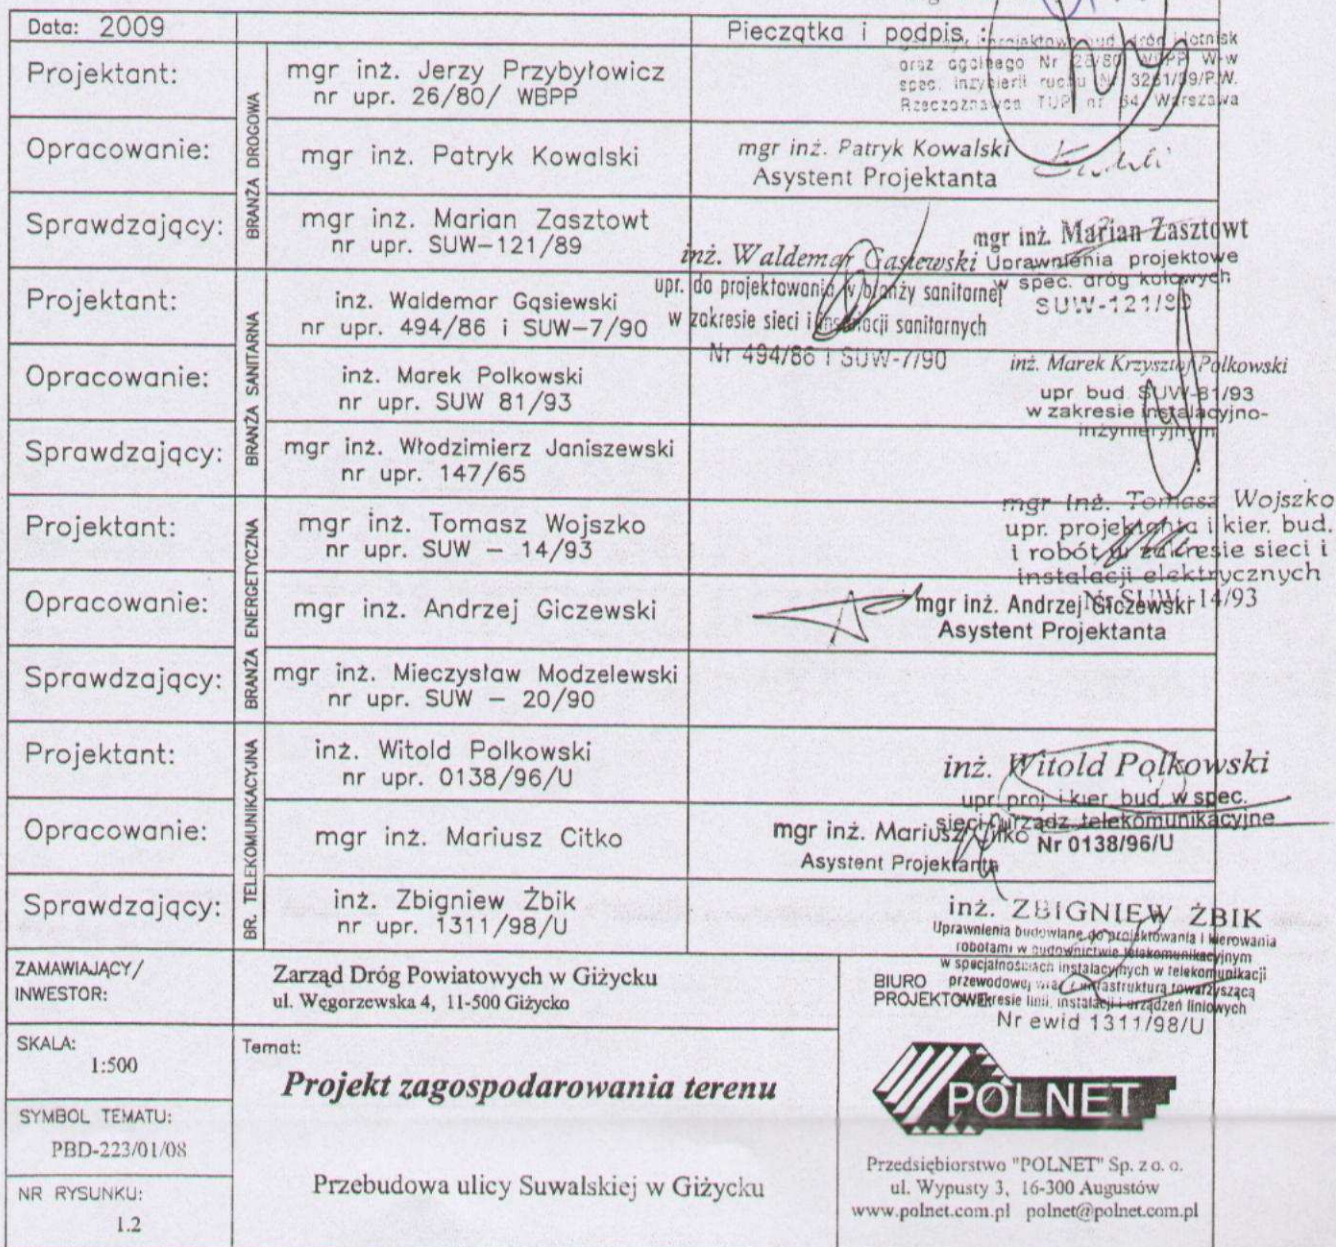 Data: 2009
Pieczątka i podpis :
Projektant:
mgr inż. Jerzy Przybyłowicz
nr upr. 26/80/ WBPP
oraz ogólnego Nr 26/80 W-w
spec. inżynierii ruchu
Rzeczoznawca TUP nr 64 Warszawa
BRANŻA DROGOWA
Opracowanie:
mgr inż. Patryk Kowalski
mgr inż. Patryk Kowalski
Asystent Projektanta
Sprawdzający:
mgr inż. Marian Zasztowt
nr upr. SUW-121/89
mgr inż. Marian Zasztowt
Uprawnienia projektowe
w spec. dróg kołowych
SUW-121/89
Projektant:
inż. Waldemar Gąsiewski
nr upr. 494/86 i SUW-7/90
inż. Waldemar Gąsiewski
upr. do projektowania w branży sanitarnej
w zakresie sieci i instalacji sanitarnych
Nr 494/86 i SUW-7/90
BRANŻA SANITARNA
Opracowanie:
inż. Marek Polkowski
nr upr. SUW 81/93
inż. Marek Krzysztof Polkowski
upr bud. SUW-81/93
w zakresie instalacyjno-
inżynieryjnym
Sprawdzający:
mgr inż. Włodzimierz Janiszewski
nr upr. 147/65
Projektant:
mgr inż. Tomasz Wojszko
nr upr. SUW – 14/93
mgr inż. Tomasz Wojszko
upr. projektanta i kier. bud.
i robót w zakresie sieci i
instalacji elektrycznych
Nr SUW-14/93
BRANŻA ENERGETYCZNA
Opracowanie:
mgr inż. Andrzej Giczewski
mgr inż. Andrzej Giczewski
Asystent Projektanta
Sprawdzający:
mgr inż. Mieczysław Modzelewski
nr upr. SUW – 20/90
Projektant:
inż. Witold Polkowski
nr upr. 0138/96/U
inż. Witold Polkowski
upr. proj. i kier. bud. w spec.
sieci i urządz. telekomunikacyjne
Nr 0138/96/U
BR. TELEKOMUNIKACYJNA
Opracowanie:
mgr inż. Mariusz Citko
mgr inż. Mariusz Citko
Asystent Projektanta
Sprawdzający:
inż. Zbigniew Żbik
nr upr. 1311/98/U
inż. ZBIGNIEW ŻBIK
Uprawnienia budowlane do projektowania i kierowania
robotami w budownictwie telekomunikacyjnym
w specjalnościach instalacyjnych w telekomunikacji
przewodowej wraz z infrastrukturą towarzyszącą
w zakresie linii, instalacji i urządzeń liniowych
Nr ewid 1311/98/U
ZAMAWIAJĄCY/
INWESTOR:
Zarząd Dróg Powiatowych w Giżycku
ul. Węgorzewska 4, 11-500 Giżycko
BIURO
PROJEKTOWE:
SKALA:
1:500
Temat:
Projekt zagospodarowania terenu
SYMBOL TEMATU:
PBD-223/01/08
NR RYSUNKU:
1.2
Przebudowa ulicy Suwalskiej w Giżycku
POLNET
Przedsiębiorstwo "POLNET" Sp. z o. o.
ul. Wypusty 3, 16-300 Augustów
www.polnet.com.pl polnet@polnet.com.pl